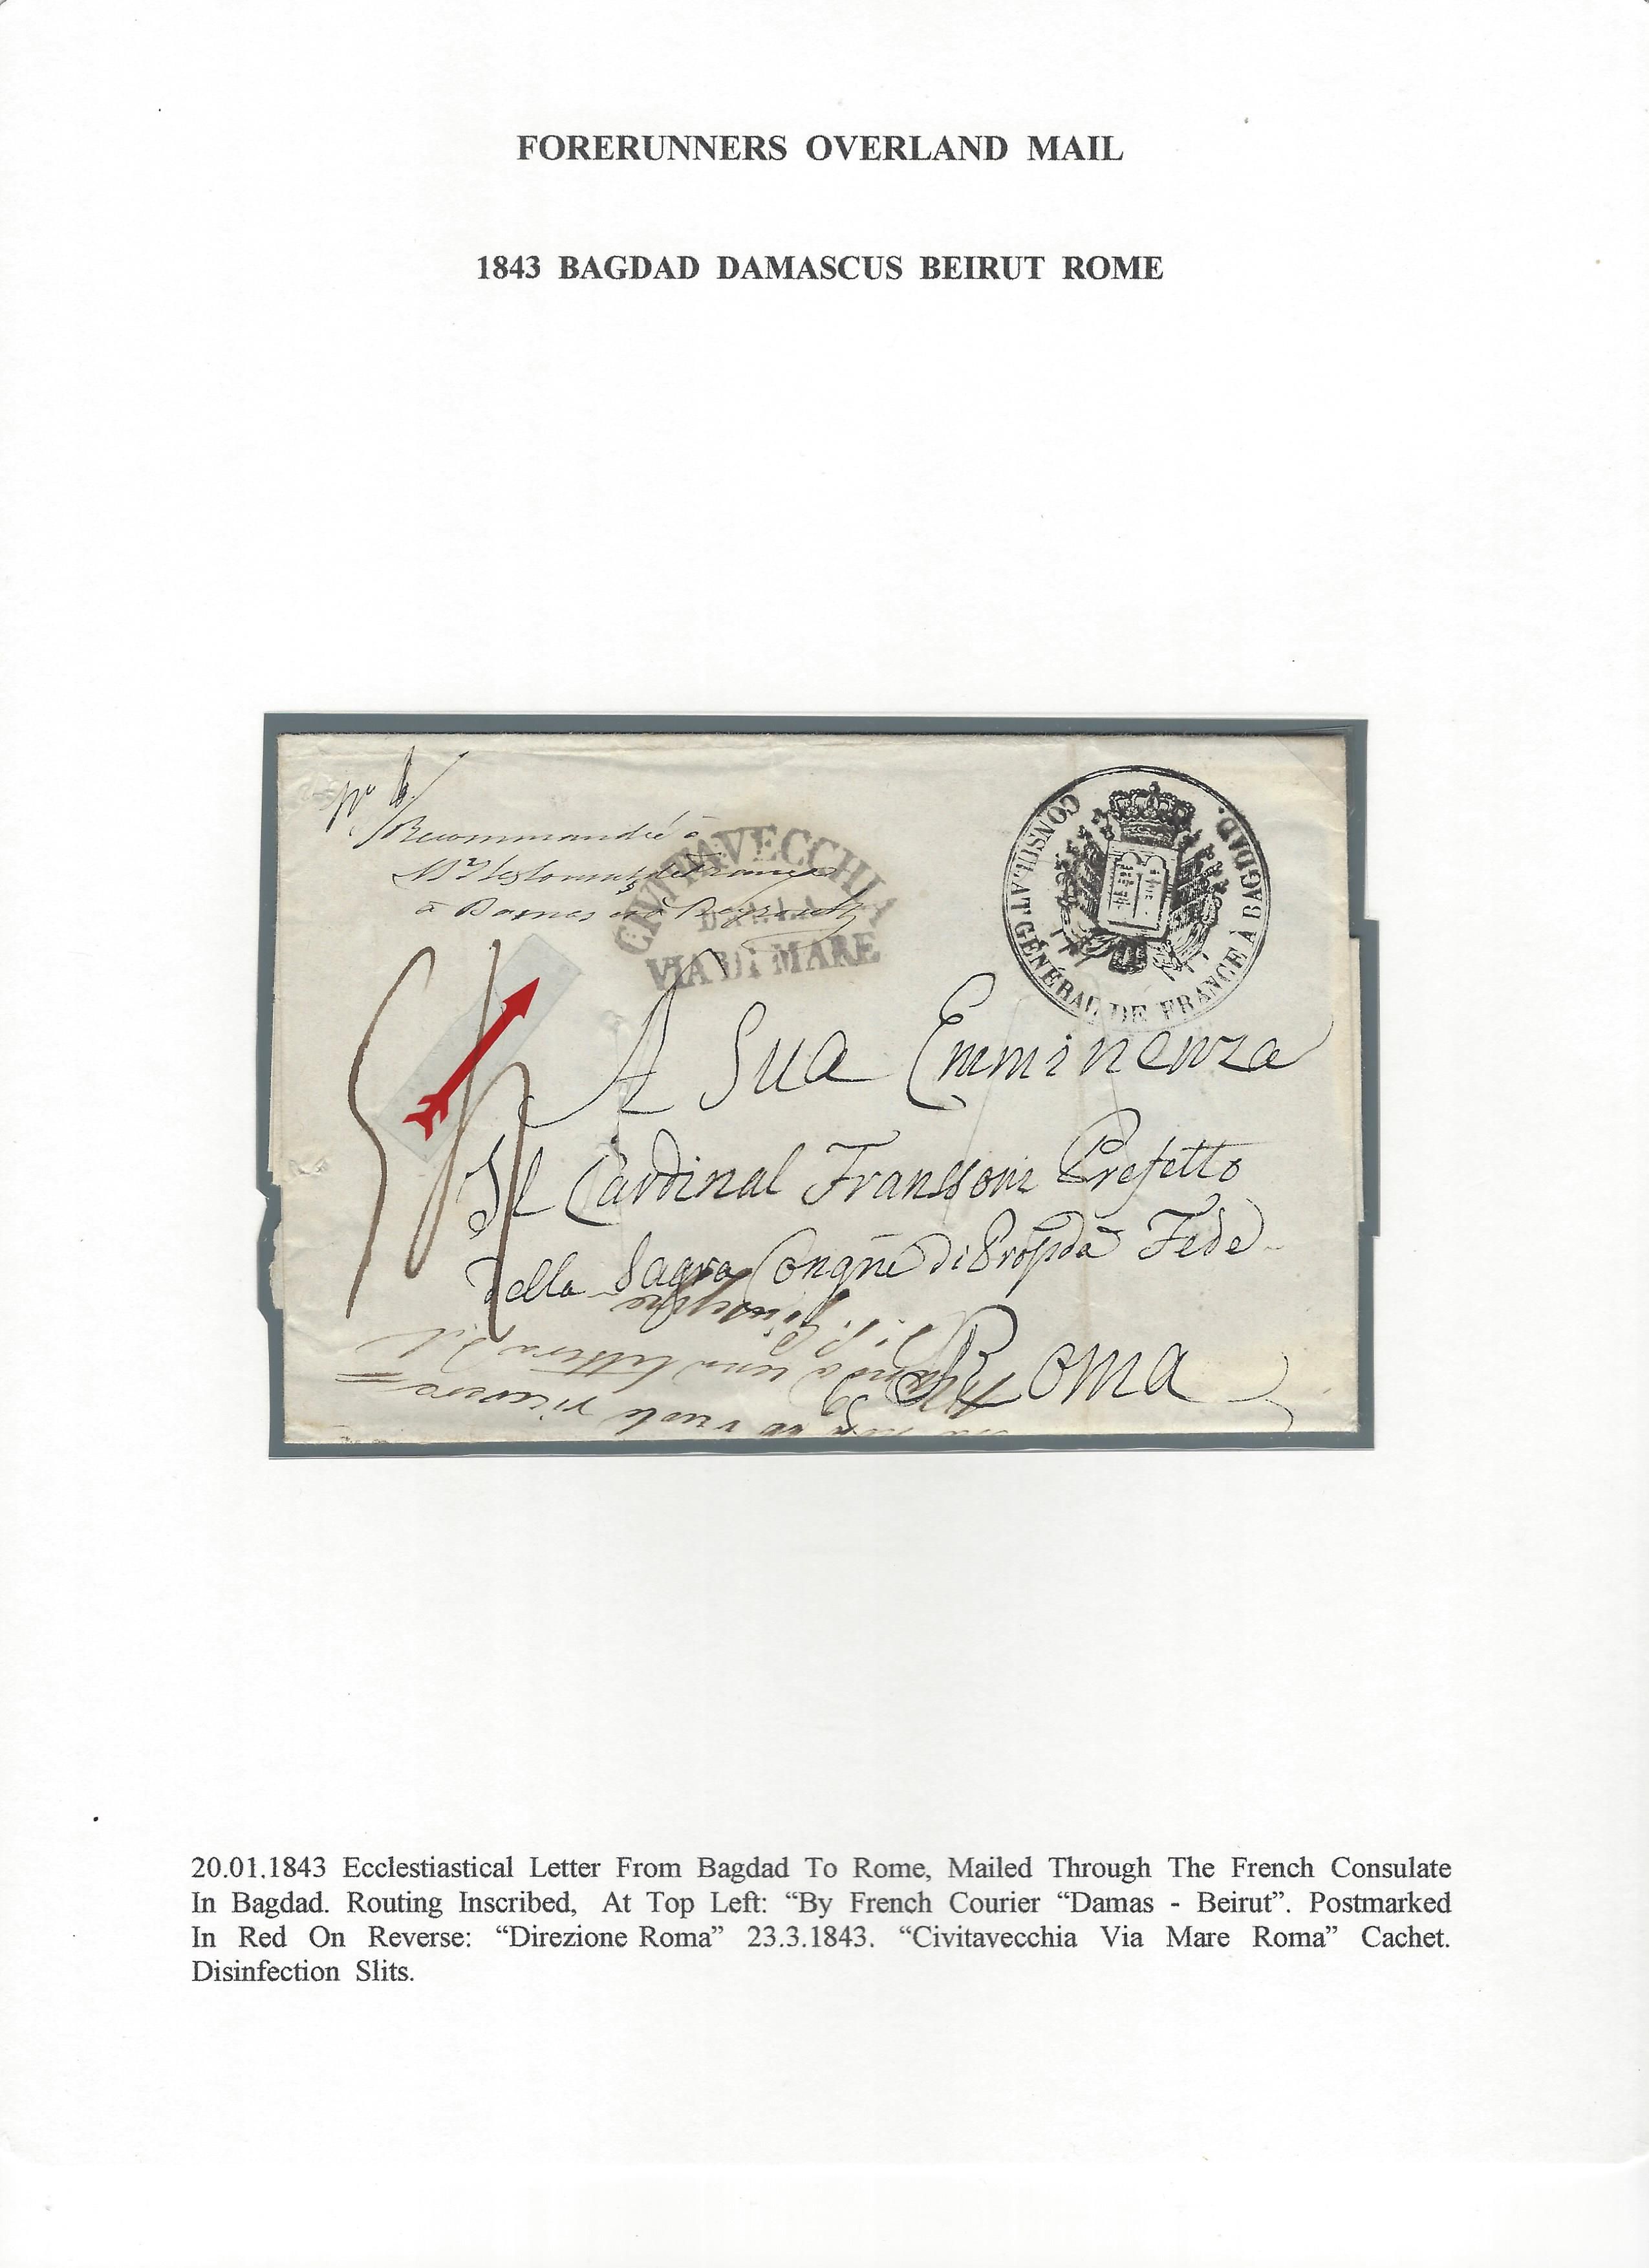 FORERUNNERS OVERLAND MAIL
1843 BAGDAD DAMASCUS BEIRUT ROME
Recommandé à
à Damas Beyrouth
CIVITAVECCHIA
DALLA
VIA DI MARE
CONSULAT GÉNÉRAL DE FRANCE À BAGDAD.
A Sua Emminenza
Il Cardinal Franssoni Prefetto
della Sagra Congne di Propda Fede
Roma
una lettera del
20.01.1843 Ecclestiastical Letter From Bagdad To Rome, Mailed Through The French Consulate
In Bagdad. Routing Inscribed, At Top Left: “By French Courier “Damas - Beirut”. Postmarked
In Red On Reverse: “Direzione Roma” 23.3.1843. “Civitavecchia Via Mare Roma” Cachet.
Disinfection Slits.